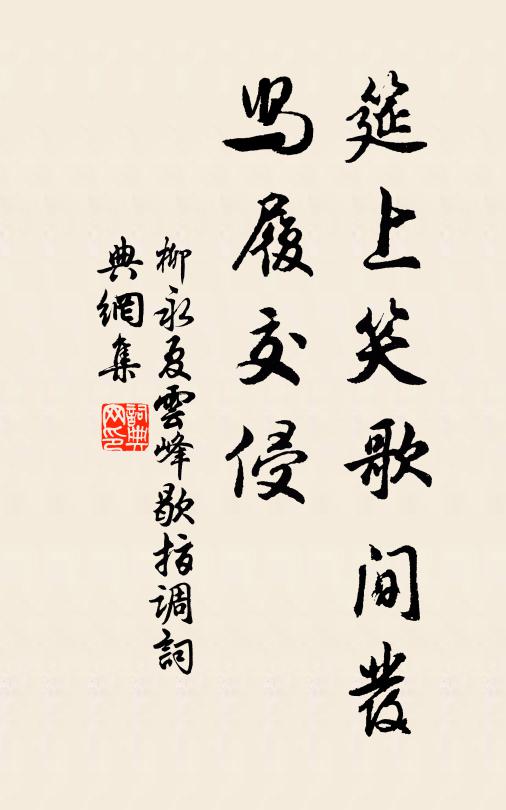 筵上笑歌间發
舄履交侵
柳永夏雲峰歇指调詞
典網集
詞典
网印